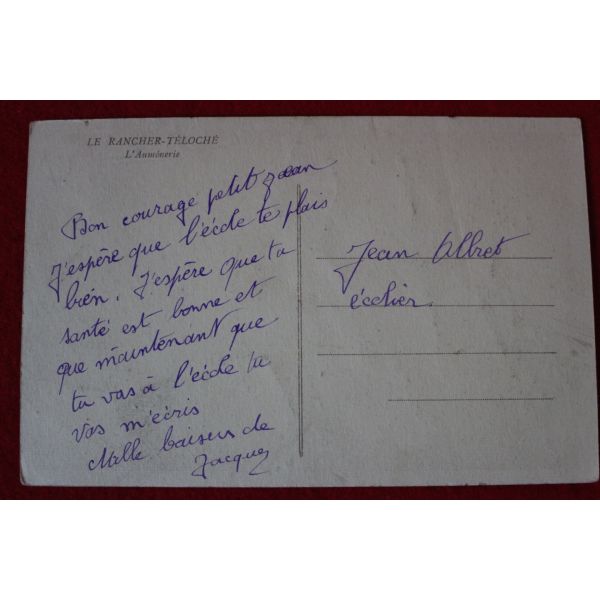 LE RANCHER-TÉLOCHÉ
L'Aumônerie
Bon courage petit Jean
J'espère que l'école te plais
bien. J'espère que ta
santé est bonne et
que maintenant que
tu vas à l'école tu
vas m'écris
Mille baisers de
Jacques
Jean Albret
écolier